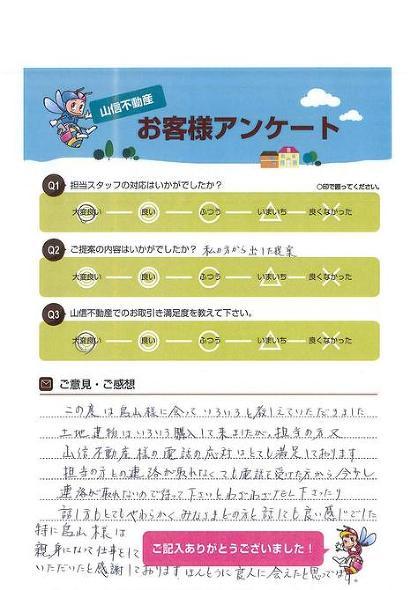 山信不動産
お客様アンケート
Q1 担当スタッフの対応はいかがでしたか？
○印で囲ってください。
大変良い 良い ふつう いまいち 良くなかった
Q2 ご提案の内容はいかがでしたか？ 私の方から出した提案
大変良い 良い ふつう いまいち 良くなかった
Q3 山信不動産でのお取引き満足度を教えて下さい。
大変良い 良い ふつう いまいち 良くなかった
ご意見・ご感想
この度は鳥山様に会っていろいろと教えていただきました
土地建物はいろいろ購入して来ましたが、担当の方又
山信不動産様の電話の応対はとても満足しております
担当の方との連絡が取れなくても電話を受けた方から今少し
連絡が取れないので待って下さいとわざわざTELして下さったり
話し方もとてもやわらかくみなさまどの方と話しても良い感じでした
特に鳥山様は
親身になって仕事をして
いただいたと感謝しております。ほんとうに良い人に会えたと思ってます。
ご記入ありがとうございました！